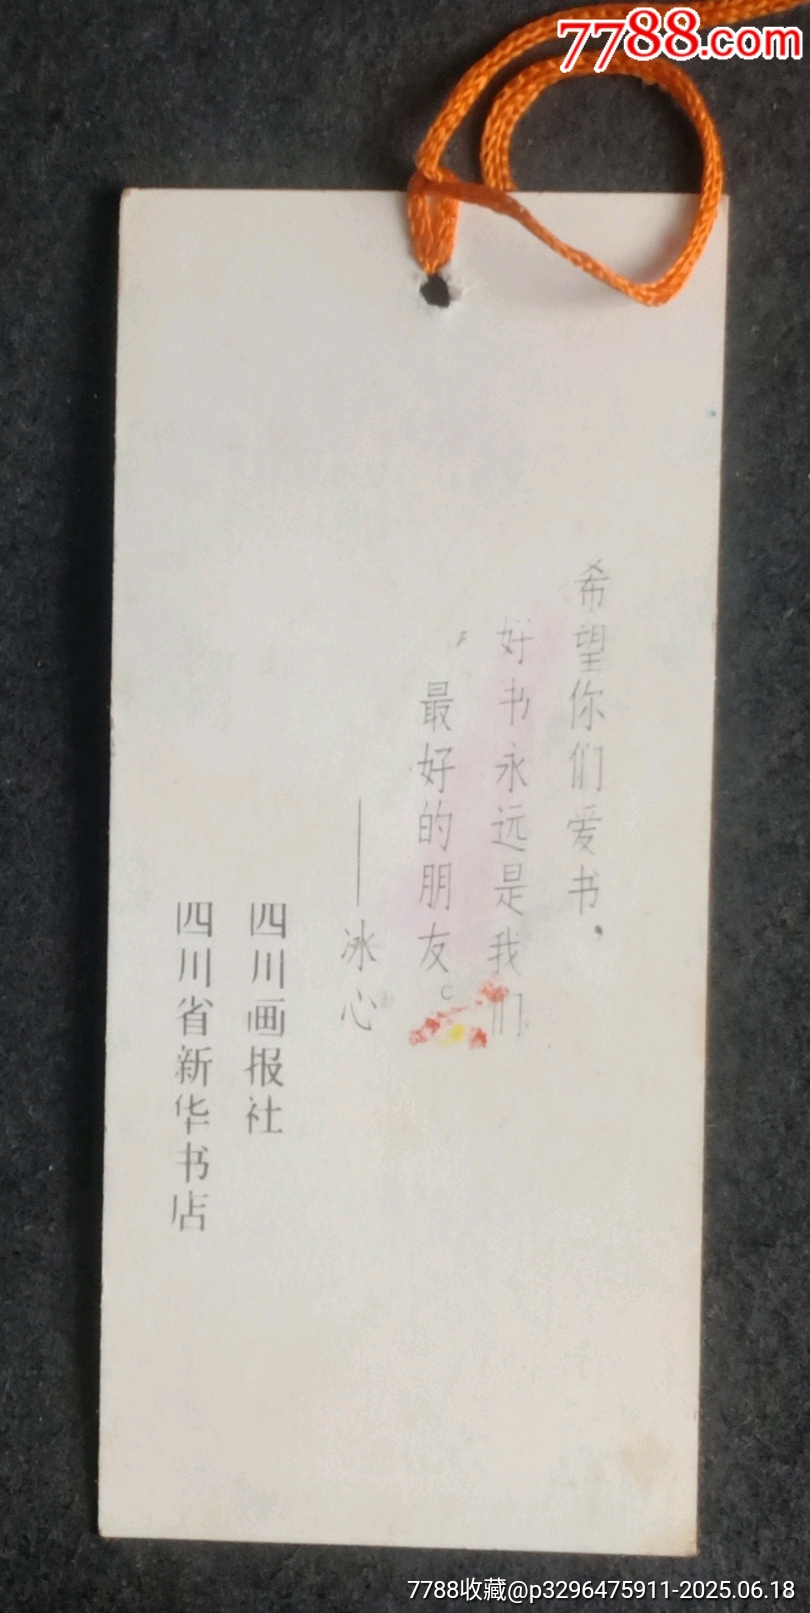 7788.com
希望你们爱书，
好书永远是我们
最好的朋友。
——冰心
四川画报社
四川省新华书店
7788收藏@p3296475911-2025.06.18